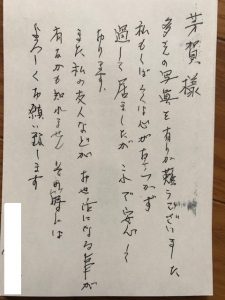 芳賀様
多くの写真を有り難うございました
私もしばらくは心がおちつかず
過して居ましたが これで安心して
おります
また私の友人などが お世話になる事が
有るかも知れません その時には
よろしくお願い致します